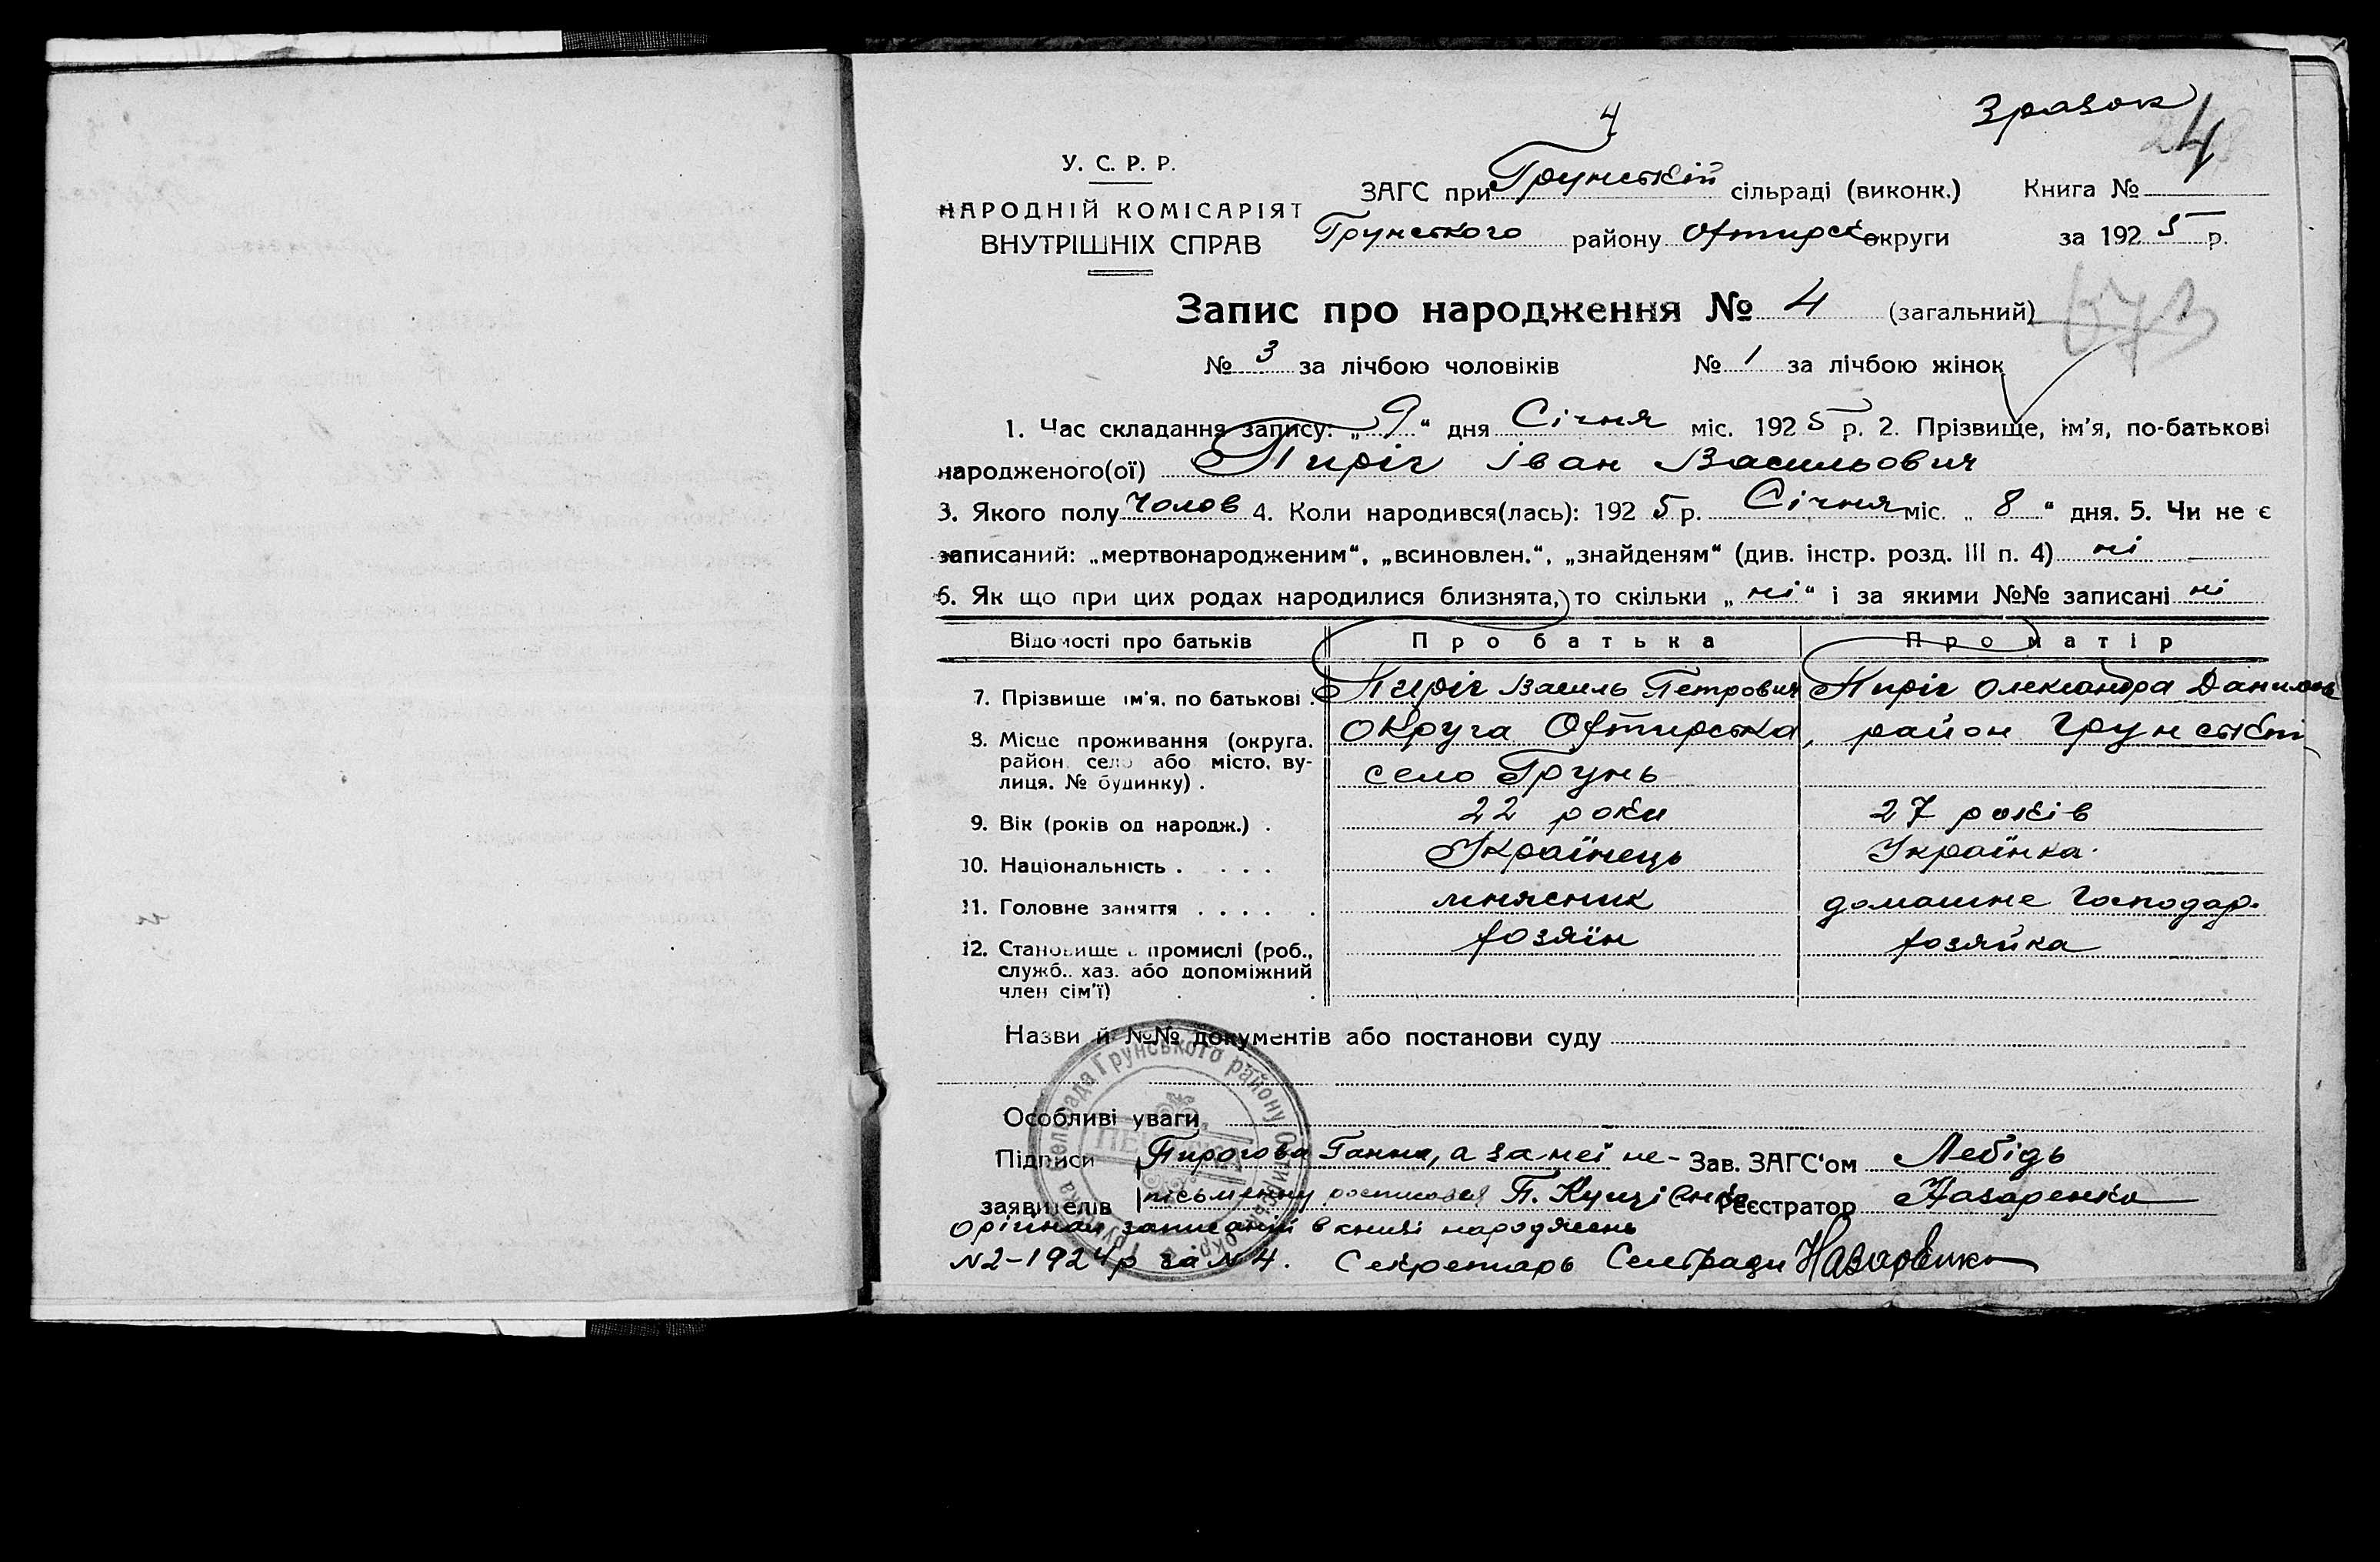 Зразок
4
4
У. С. Р. Р.
ЗАГС при Грунській сільраді (виконк.) Книга №
НАРОДНІЙ КОМІСАРІЯТ
ВНУТРІШНІХ СПРАВ
Грунського району Охтирськ округи за 1925 р.
Запис про народження № 4 (загальний)
№ 3 за лічбою чоловіків № 1 за лічбою жінок
1. Час складання запису: „9“ дня Січня міс. 1925 р. 2. Прізвище, ім'я, по-батькові
народженого(ої) Пиріг Іван Васильович
3. Якого полу Чолов 4. Коли народився(лась): 1925 р. Січня міс. „8“ дня. 5. Чи не є
записаний: „мертвонародженим“, „всиновлен.“, „знайденям“ (див. інстр. розд. III п. 4) ні
6. Як що при цих родах народилися близнята, то скільки „ні“ і за якими №№ записані ні
Відомості про батьків Про батька Про матір
7. Прізвище ім'я, по батькові . Пиріг Василь Петрович Пиріг Олександра Данилов
8. Місце проживання (округа, район, село або місто, вулиця, № будинку) . округа Охтирська, район Грунський
село Грунь
9. Вік (років од народж.) . 22 роки 27 років
10. Національність . . . . Українець Українка
11. Головне заняття . . . . . мнясник домашне господар.
12. Становище в промислі (роб., хозяїн хозяйка
служб., хаз. або допоміжний
член сім'ї) . .
Назви й №№ документів або постанови суду
Особливі уваги
Підписи Пирогова Ганна, а за неї не- Зав. ЗАГС'ом Лебідь
заявителів письменну П. Куці Реєстратор Назаренко
Орігінал записаний в книзі народжень
N2-1924р за N4. Секретарь Сельради Назаренко
Грунська Сельрада Грунського району Охтирськ. окр.
ПЕЧАТКА